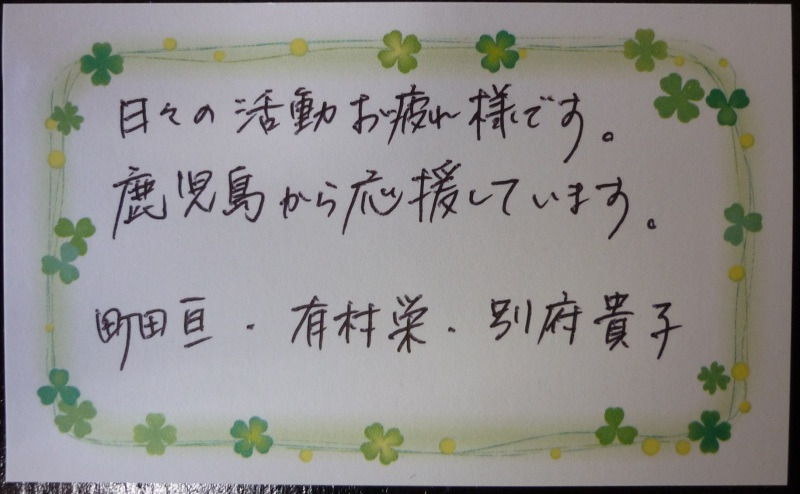 日々の活動お疲れ様です。
鹿児島から応援しています。
町田亘・有村栄・別府貴子